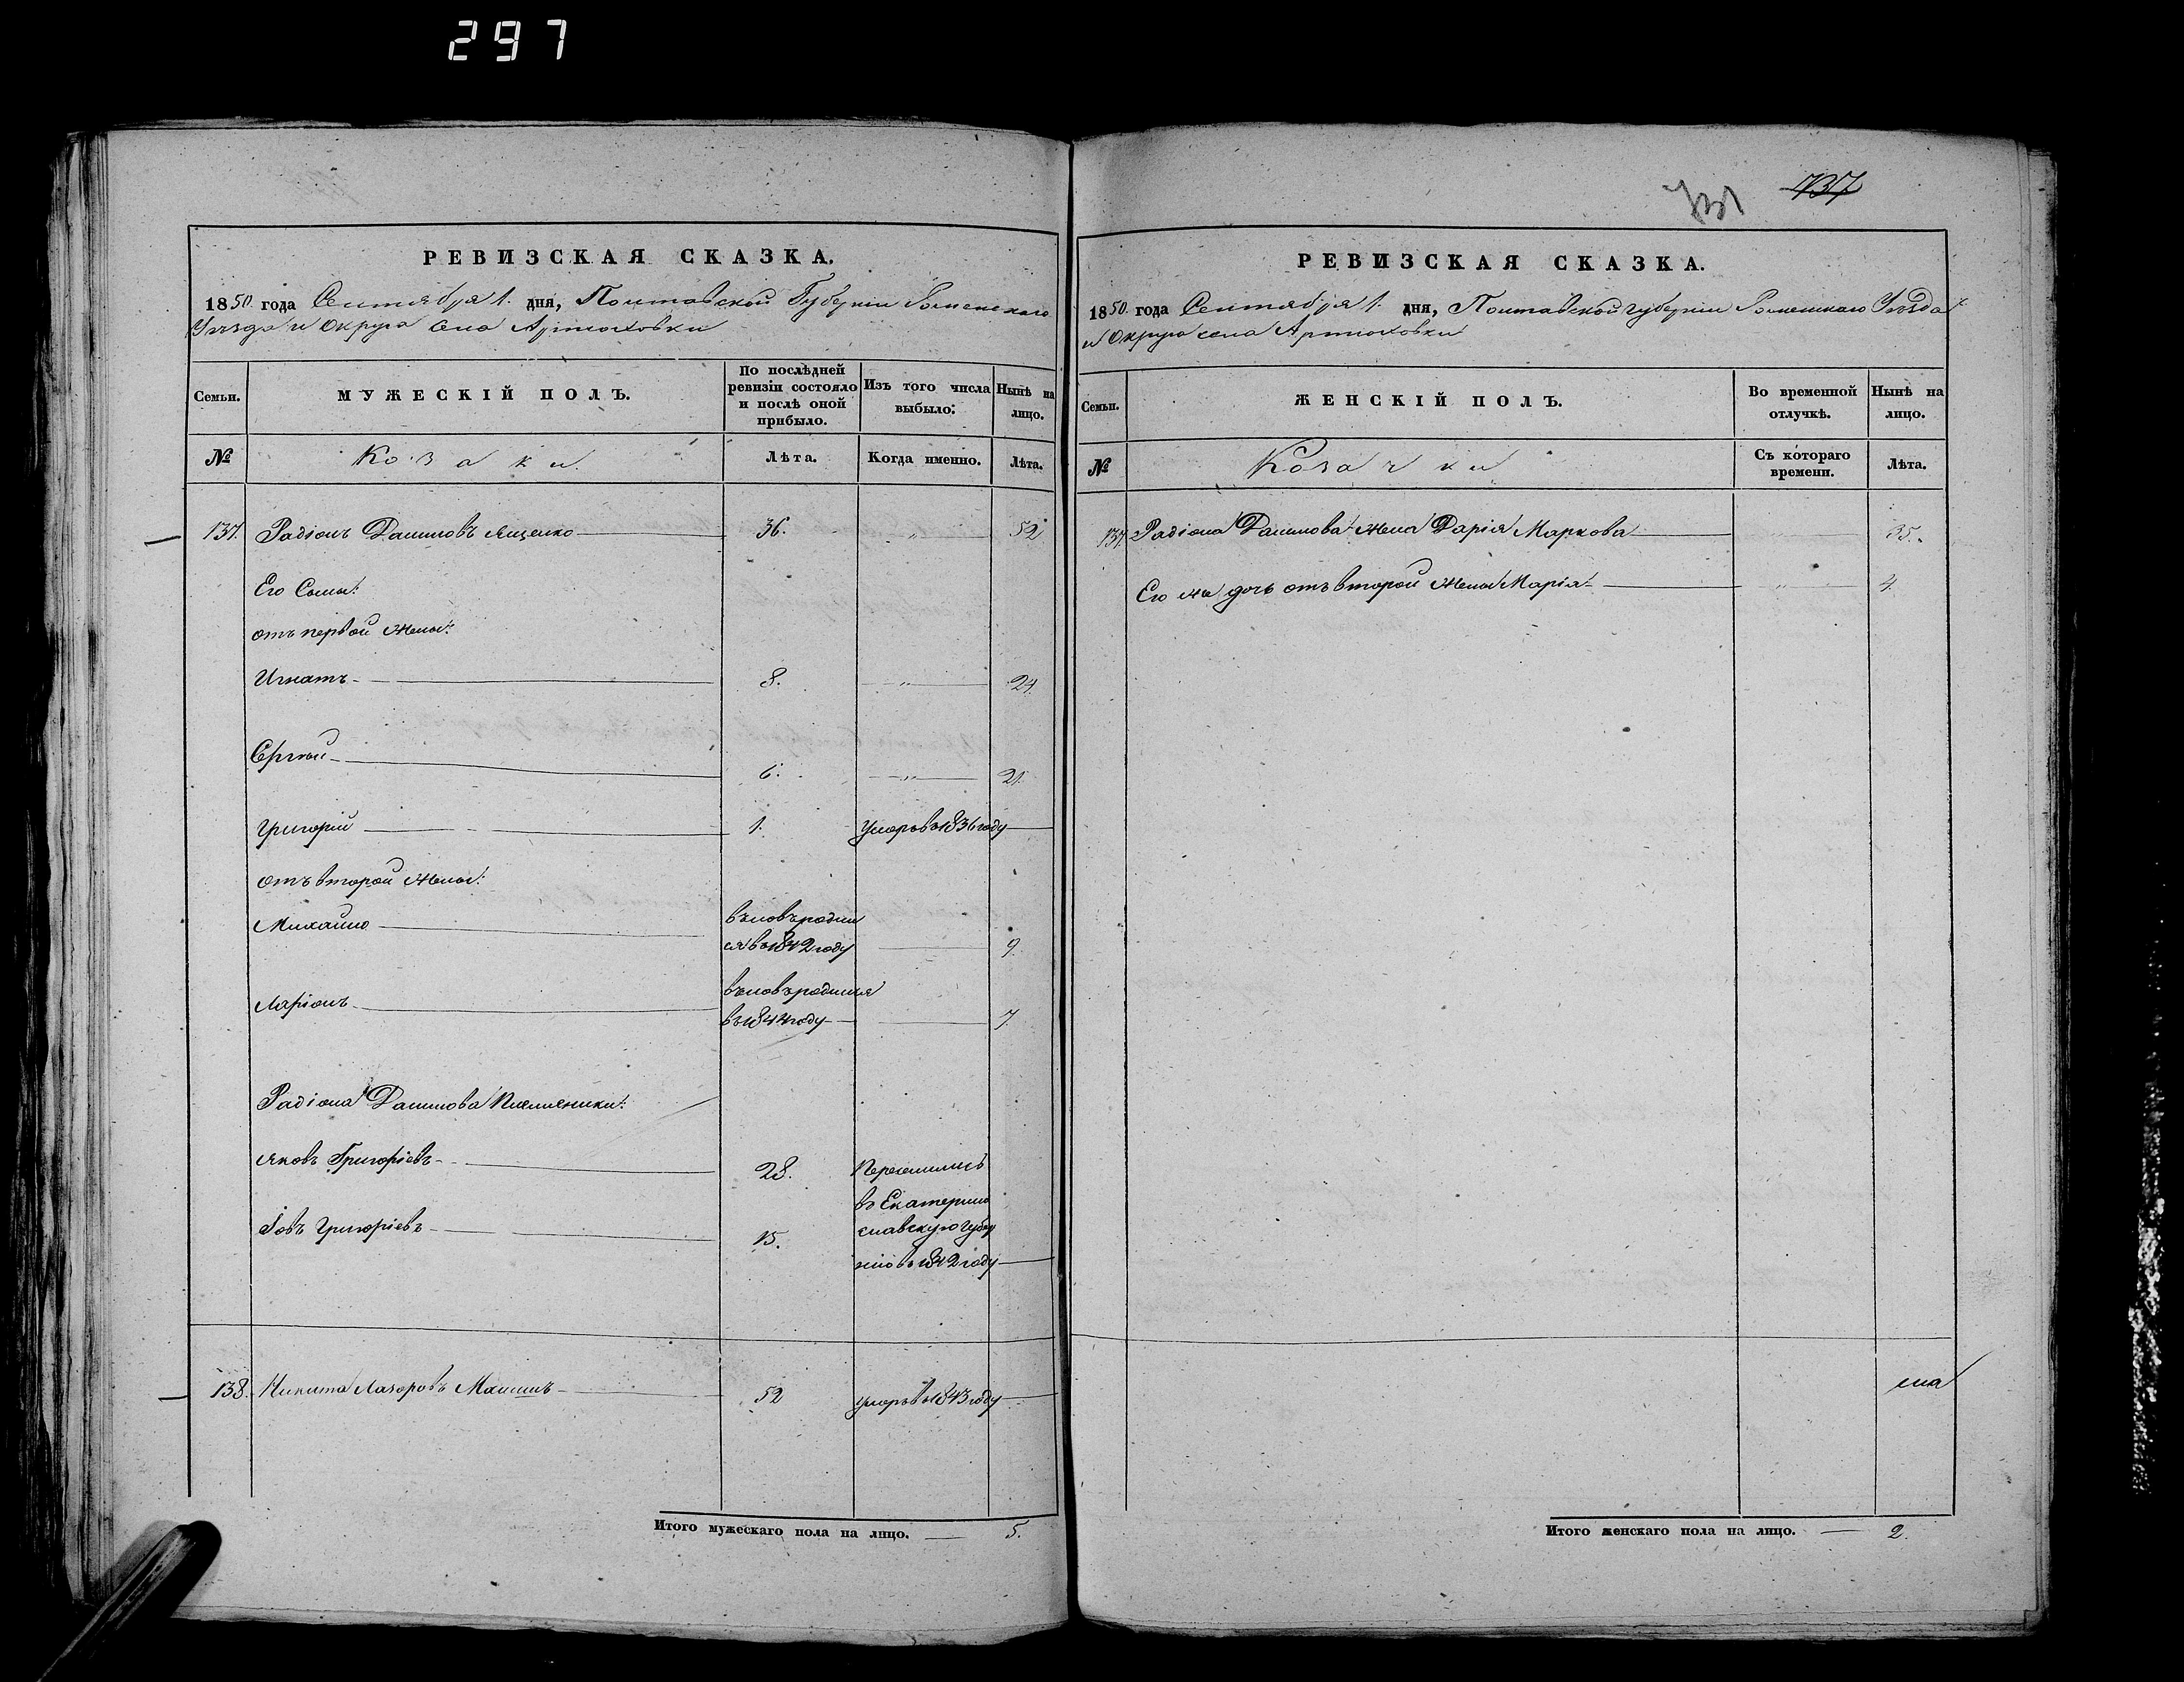 297
РЕВИЗСКАЯ СКАЗКА.
1850 года Сентября 1. дня, Полтавской Губерніи Роменскаго
Уѣзда и Округа села Артюховки
Семьи.
МУЖЕСКІЙ ПОЛЪ.
По послѣдней
ревизіи состояло
и послѣ оной
прибыло.
Изъ того числа
выбыло:
Нынѣ на
лицо.
№
Козаки.
Лѣта.
Когда именно.
Лѣта.
137. Радіонъ Даниловъ Ященко 36. „ 52
Его Сыны:
отъ первой жены:
Игнатъ 8. „ 24.
Сергѣй 6. „ 21.
Григорій 1. Умеръ въ 1836 году
отъ второй жены:
Михайло
вновь родил
ся въ 1842 году 9.
Ларіонъ
вновь родился
въ 1844 году 7.
Радіона Данилова племяники:
Яковъ Григорьевъ 28. Переселились
въ Екатерино
славскую Губер
нію въ 1842 году
Іовъ Григорьевъ 15.
138. Никита Лазоровъ 52 умеръ въ 1843 году
Итого мужескаго пола на лицо. 5.
731
737
РЕВИЗСКАЯ СКАЗКА.
1850 года Сентября 1. дня, Полтавской Губерніи Роменскаго Уѣзда
и Округа села Артюховки
Семьи.
ЖЕНСКІЙ ПОЛЪ.
Во временной
отлучкѣ.
Нынѣ на
лицо.
№
Козачки
Съ котораго
времени.
Лѣта.
137. Радіона Данилова жена Дарія Маркова „ 35.
Его же дочь отъ второй жены Марія „ 4.
Итого женскаго пола на лицо. 2.